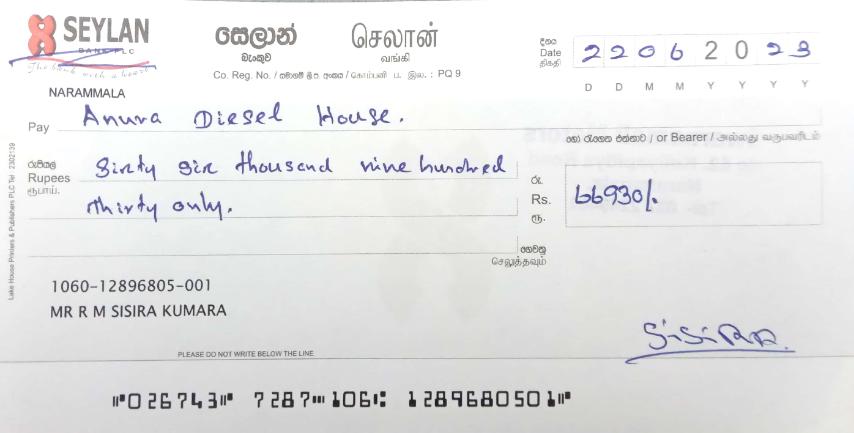 SEYLAN
BANK PLC
The bank with a heart
සෙලාන්
බැංකුව
செலான்
வங்கி
Co. Reg. No. / සමාගම් ලි.ප. අංකය / கொம்பனி ப. இல. : PQ 9
දිනය
Date
திகதி
22062023
D D M M Y Y Y Y
NARAMMALA
Pay Anura Diesel House.
හෝ රැගෙන එන්නාට / or Bearer / அல்லது வருபவரிடம்
රුපියල්
Rupees
ரூபாய்.
Sixty six thousand nine hundred
thirty only.
රු.
Rs.
ரூ.
66930/.
ගෙවනු
செலுத்தவும்
Lake House Printers & Publishers PLC Tel 2302139
1060-12896805-001
MR R M SISIRA KUMARA
SiSiRA.
PLEASE DO NOT WRITE BELOW THE LINE
⑈026743⑈ 7287⑉106⑆ 1289680501⑈